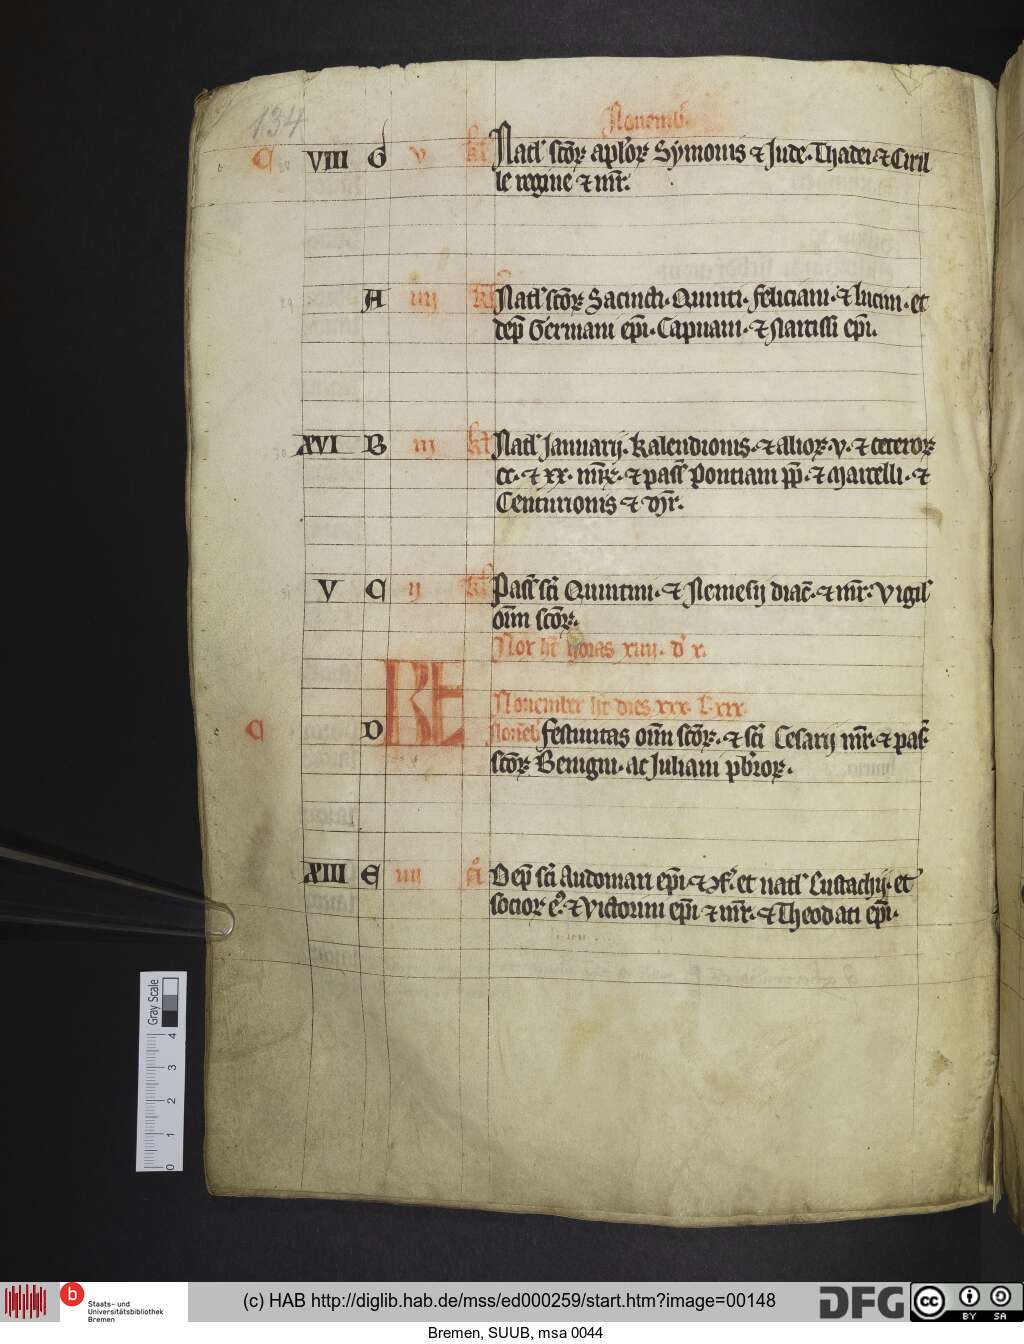 134
Nouemb.
C 28 VIII G v kl Natl' sctorꝝ aplorꝝ Symonis ⁊ Jude. Thadei ⁊ Ciril
le regine ⁊ mr̄.
29 A iiij kl Natl' sctorꝝ Quinti. feliciani. ⁊ lucini. et
dep̄ Germani ep̄i. Capuani. ⁊ Narcissi ep̄i.
30 XVI B iij kl Natl' Januarij. kalendionis. ⁊ alioꝝ. v. ⁊ ceteroꝝ
cc. ⁊ xx. ⁊ pass̄ Ponciani pp̄. ⁊ Marcelli. ⁊
Centurionis ⁊ mr̄.
31 V C ij kl Pass̄ sc̄i Quintini. ⁊ Nemesij diac̄. ⁊ mr̄. Vigil'
om̄ sc̄oꝝ.
Nox ht̄ horas xiiij. d' x.
KL
Nouember ht̄ dies xxx. l' xxx.
C D Nouēb' festiuitas om̄ sc̄oꝝ. ⁊ sc̄i Cesarij mr̄. ⁊ pas̄
sc̄oꝝ Benigni. ac Juliani pb̄roꝝ.
XIII E iiij Dep̄ sc̄i Audomari ep̄i. ⁊ ꝯf̄. et natl' Eustachij. et
socioꝝ ei'. ⁊ Victorini ep̄i ⁊ mr̄. ⁊ Theodati ep̄i.
Gray Scale
0 1 2 3 4
b
Staats- und
Universitätsbibliothek
Bremen
(c) HAB http://diglib.hab.de/mss/ed000259/start.htm?image=00148
DFG
cc BY SA
Bremen, SUUB, msa 0044